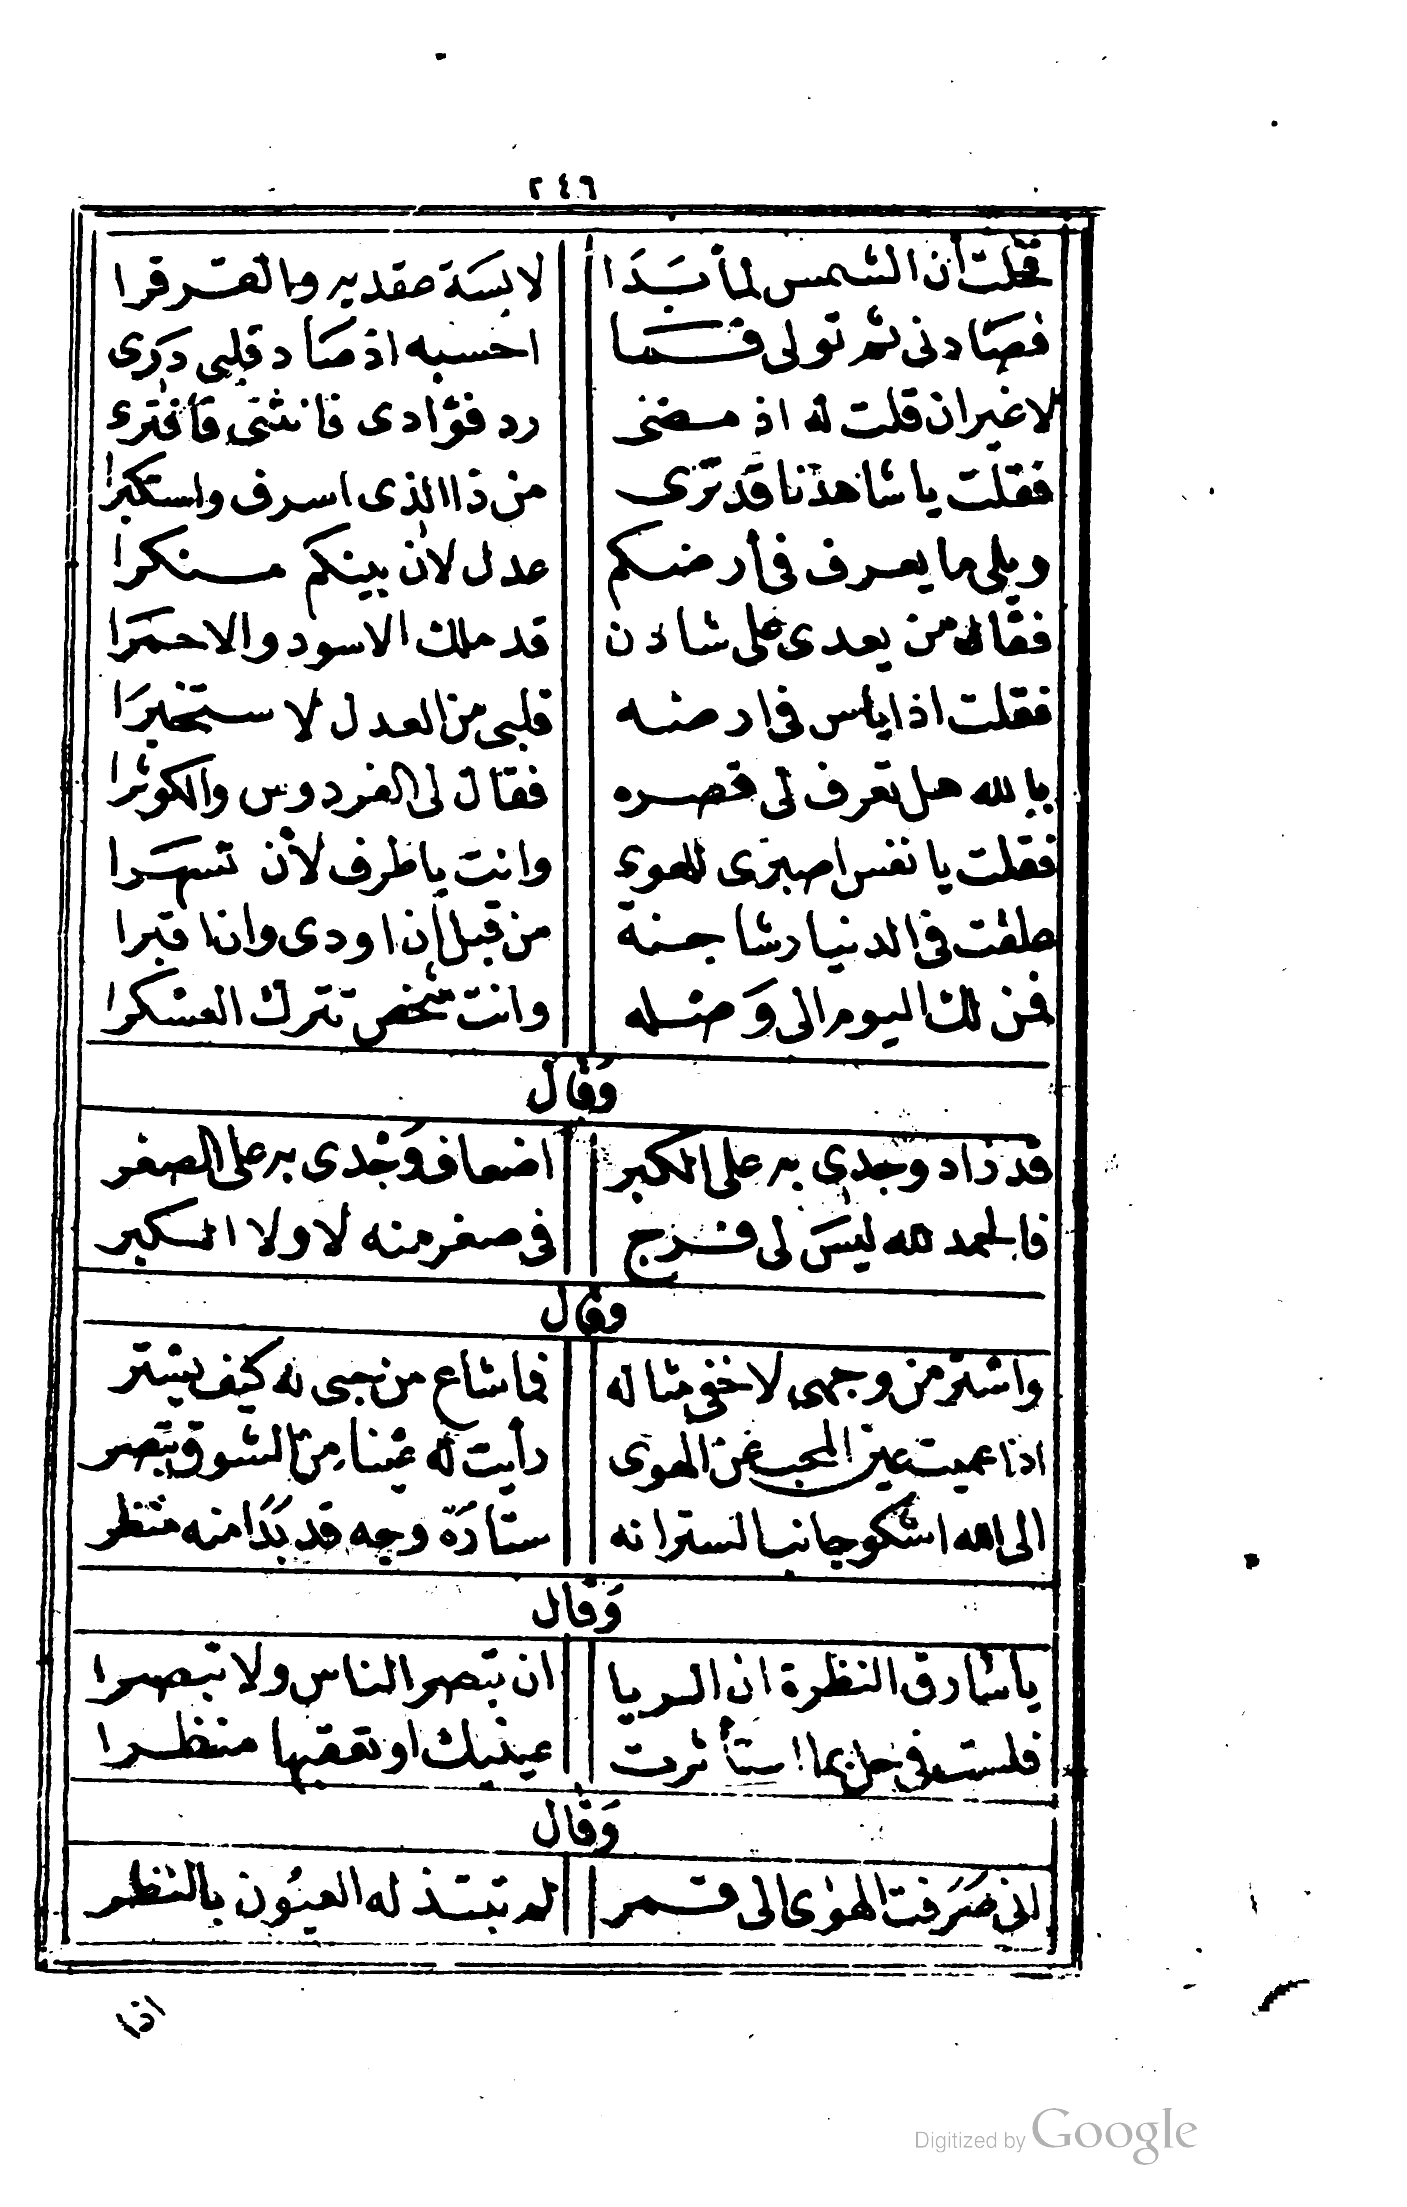 ٢٤٦
فخلت أن الشمس لما بدا لابسة عقديه والقرقرا
فصادنى ثم تولى فما احسبه اذ صاد قلبى درى
لا غير ان قلت له اذ مضى رد فؤادى فانثنى فافترى
فقلت يا شاهدنا قد ترى من ذا الذى اسرف واستكبرا
ويلى ما يعرف فى أرضكم عدل لأن بينكم منكرا
فقال من يعدى على شادن قد ملك الاسود والاحمرا
فقلت اذا يأس فى ارضه قلبى من العدل لا ستخبرا
بالله هل تعرف لى قصره فقال لى الفردوس والكوثرا
فقلت يا نفس اصبرى للهوى وانت يا طرف لأن تسهرا
علقت فى الدنيا رشا جنة من قبل أن اودى وان اقبرا
فمن لك اليوم الى وصله وانت شخص تترك العسكرا
وقال
قد زاد وجدى به على الكبر اضعاف وجدى به على الصغر
فالحمد لله ليس لى فرج فى صغر منه لا ولا الكبر
وقال
واشتر من وجهى لا خفى مثاله فما شاع من حبى له كيف يستتر
اذا عميت عين المحب عن الهوى رأيت له عينا من الشوق تبصر
الى الله اشكو جانب الستر انه ستارة وجه قد بدا منه منظر
وقال
يا سارق النظرة ان الريا ان تبصر الناس ولا تبصرا
فلست فى حل بما استأثرت عينيك او تعقبها منظرا
وقال
انى صرفت الهوى الى قمر لم تبتذله العيون بالنظر
اذا
Digitized by Google